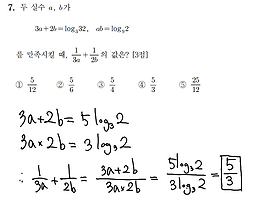 7. 두 실수 a, b가
3a+2b=log₃32, ab=log₉2
를 만족시킬 때, 1/3a + 1/2b 의 값은? [3점]
① 5/12 ② 5/6 ③ 5/4 ④ 5/3 ⑤ 25/12
3a+2b = 5 log₃2
3a×2b = 3 log₃2
∴ 1/3a + 1/2b = 3a+2b/3a×2b = 5log₃2/3log₃2 = 5/3